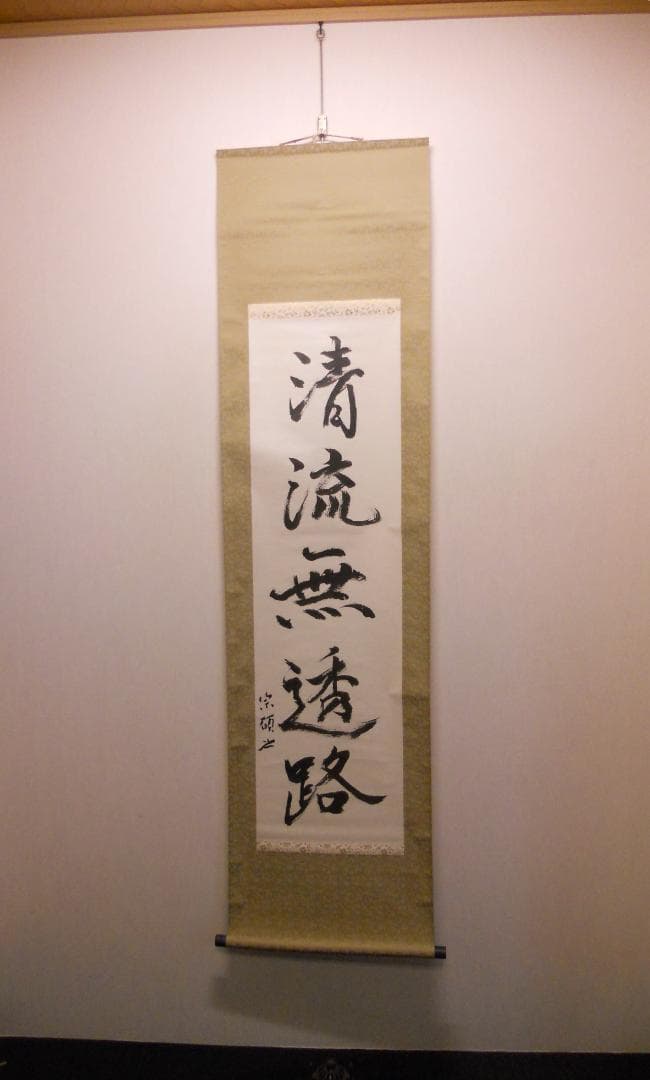 清流無透路
宗碩书